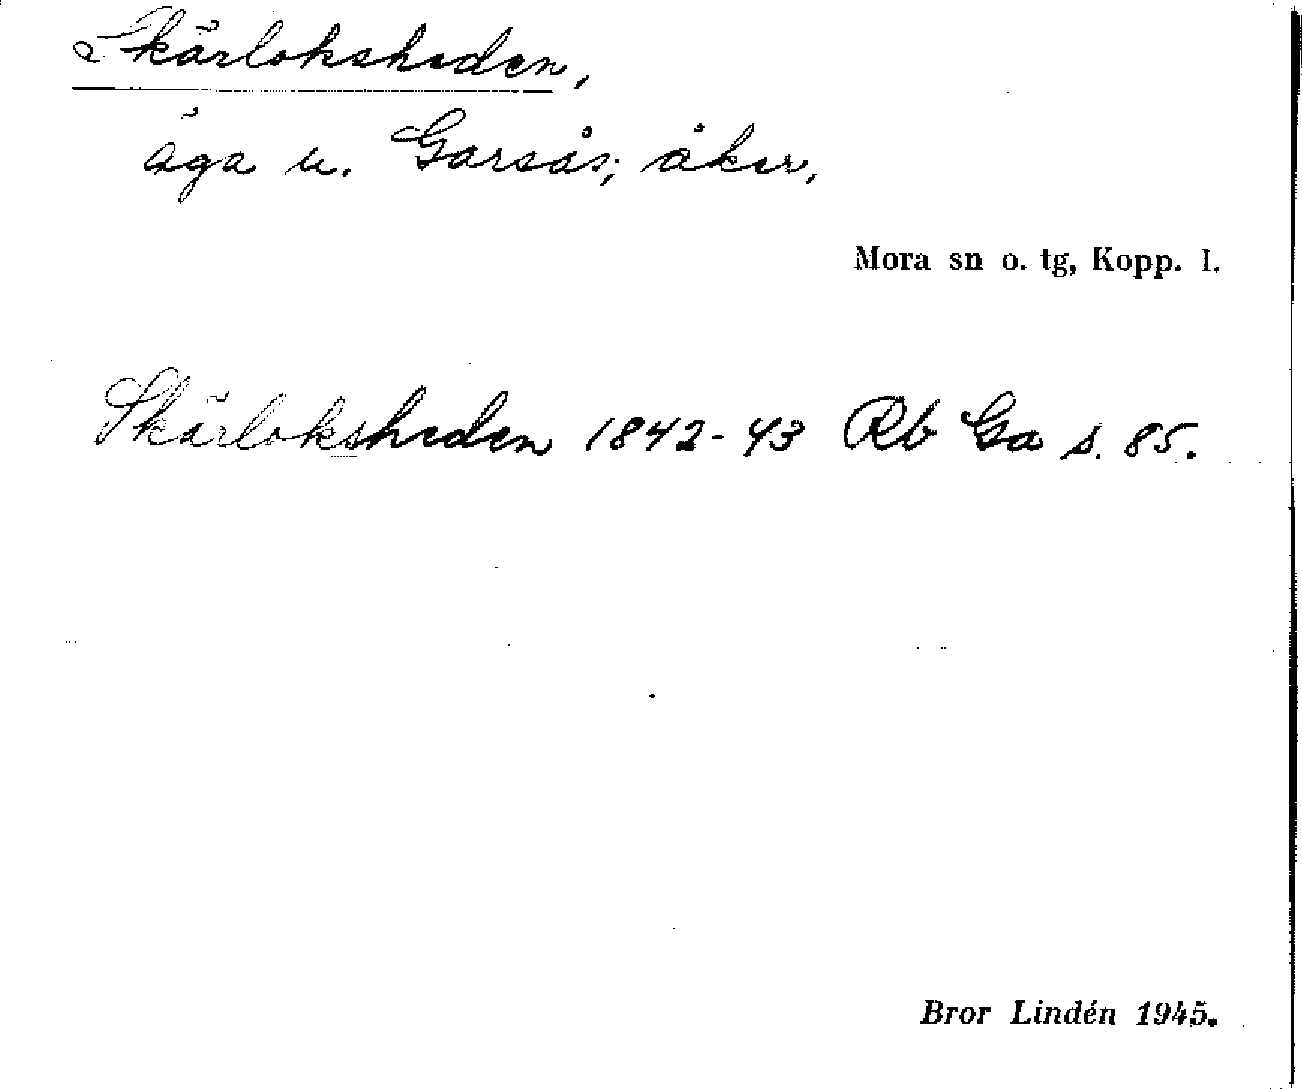 Skärloksheden,
äga u. Garsås; åker,
Mora sn o. tg, Kopp. l.
Skärloksheden 1842-43 Rb Ga s. 85.
Bror Lindén 1945.